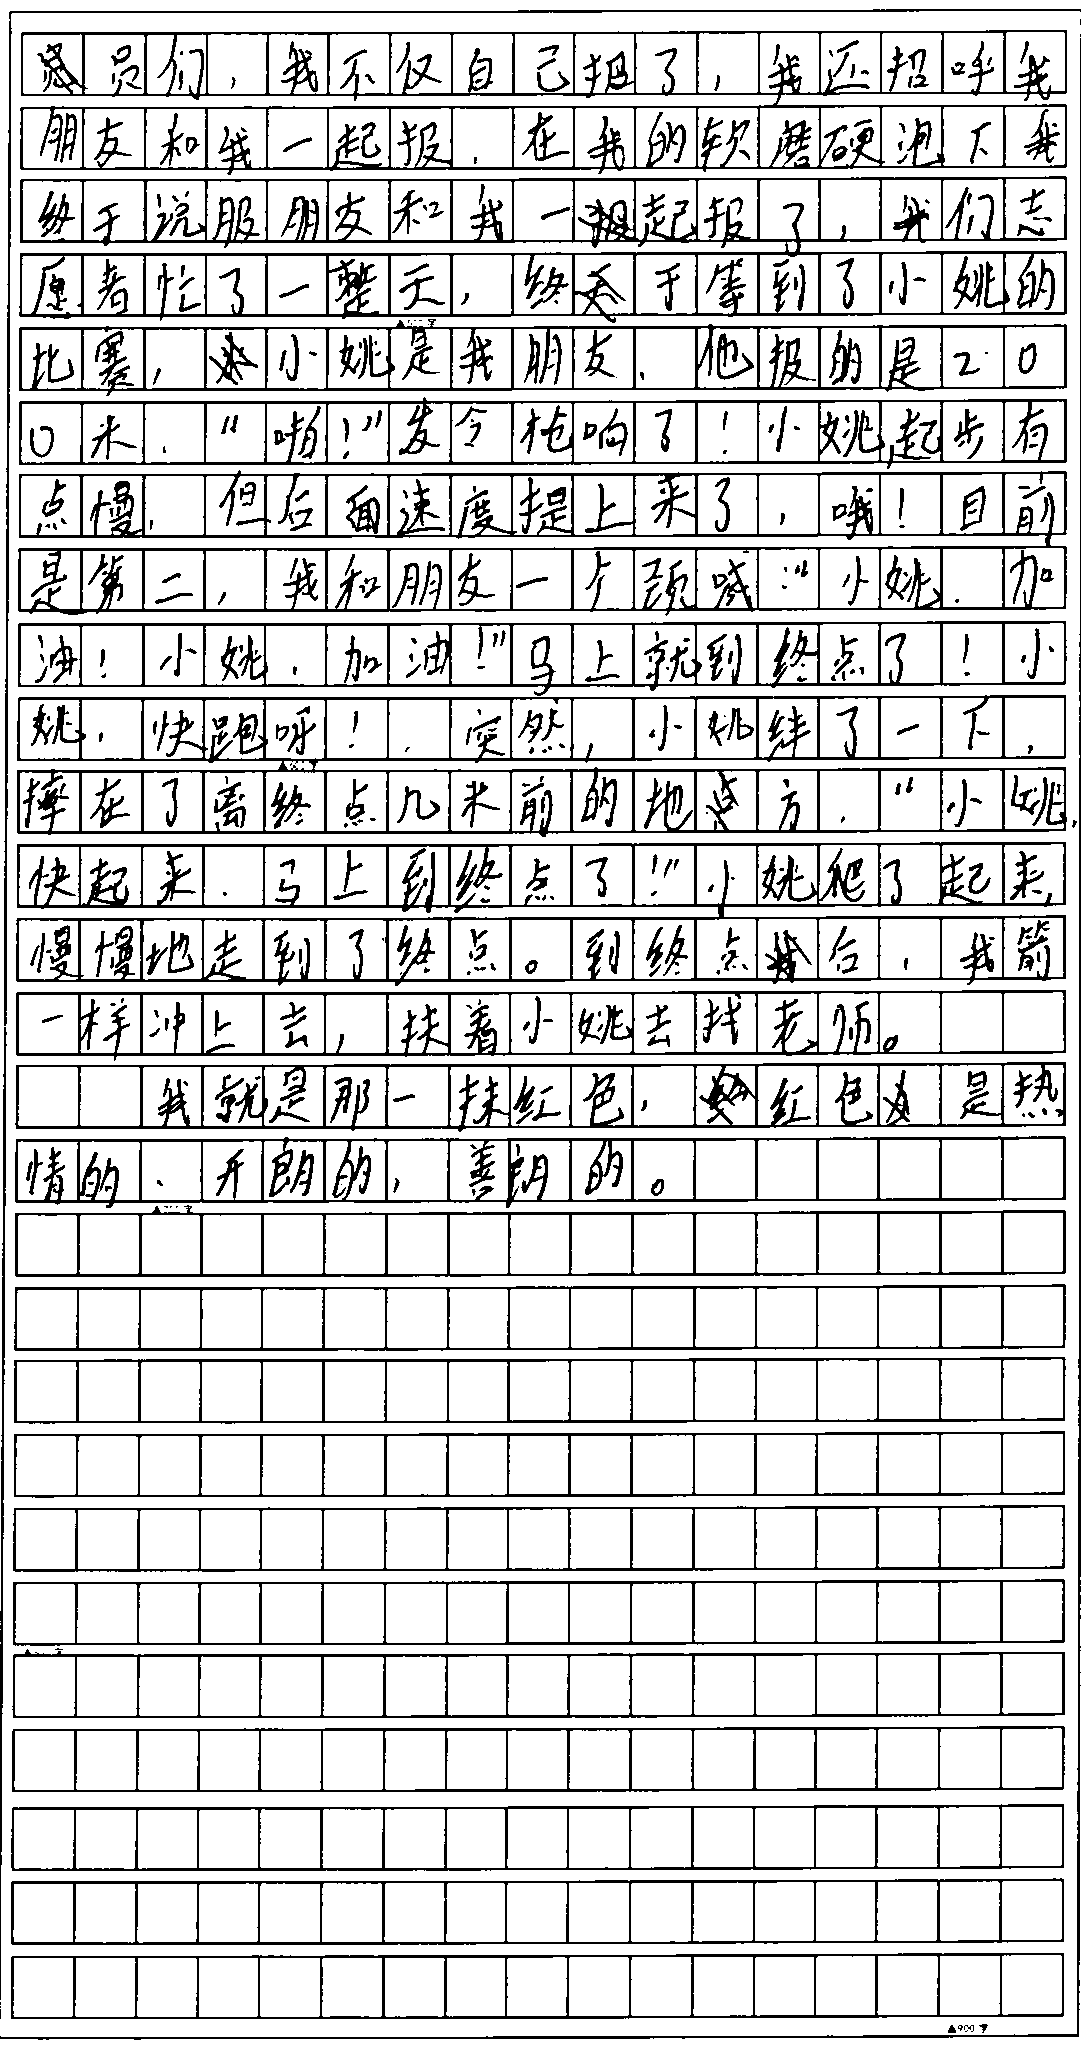 员们，我不仅自己报了，我还招呼我
朋友和我一起报．在我的软磨硬泡下我
终于说服朋友和我一起报了，我们志
愿者忙了一整天，终于等到了小姚的
比赛，小姚是我朋友．他报的是20
0米．“啪！”发令枪响了！小姚起步有
点慢，但后面速度提上来了，哦！目前
是第二，我和朋友一个颈喊：“小姚．加
油！小姚．加油！”马上就到终点了！小
姚．快跑呀！．突然，小姚绊了一下，
摔在了离终点几米前的地方．“小姚，
快起来．马上到终点了！”小姚爬了起来，
慢慢地走到了终点。到终点后，我箭
一样冲上去，扶着小姚去找老师。
我就是那一抹红色，红色是热
情的、开朗的，善朗的。
▲900字